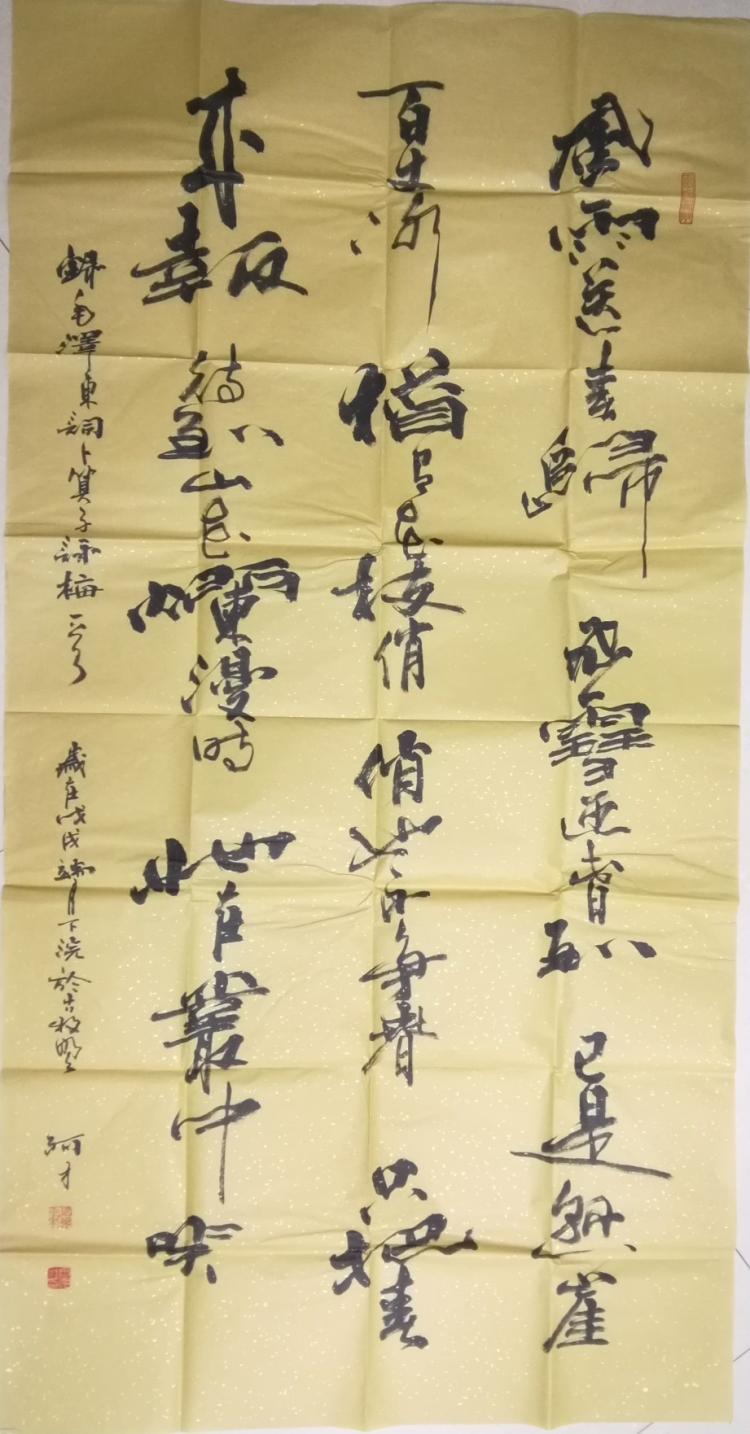 風雨送春歸飛雪迎春到已是懸崖
百丈冰猶有花枝俏俏也不爭春只把春
來報待到山花爛漫時她在叢中笑
錄毛澤東詞卜算子詠梅一首 歲在戊戌端月下浣於古